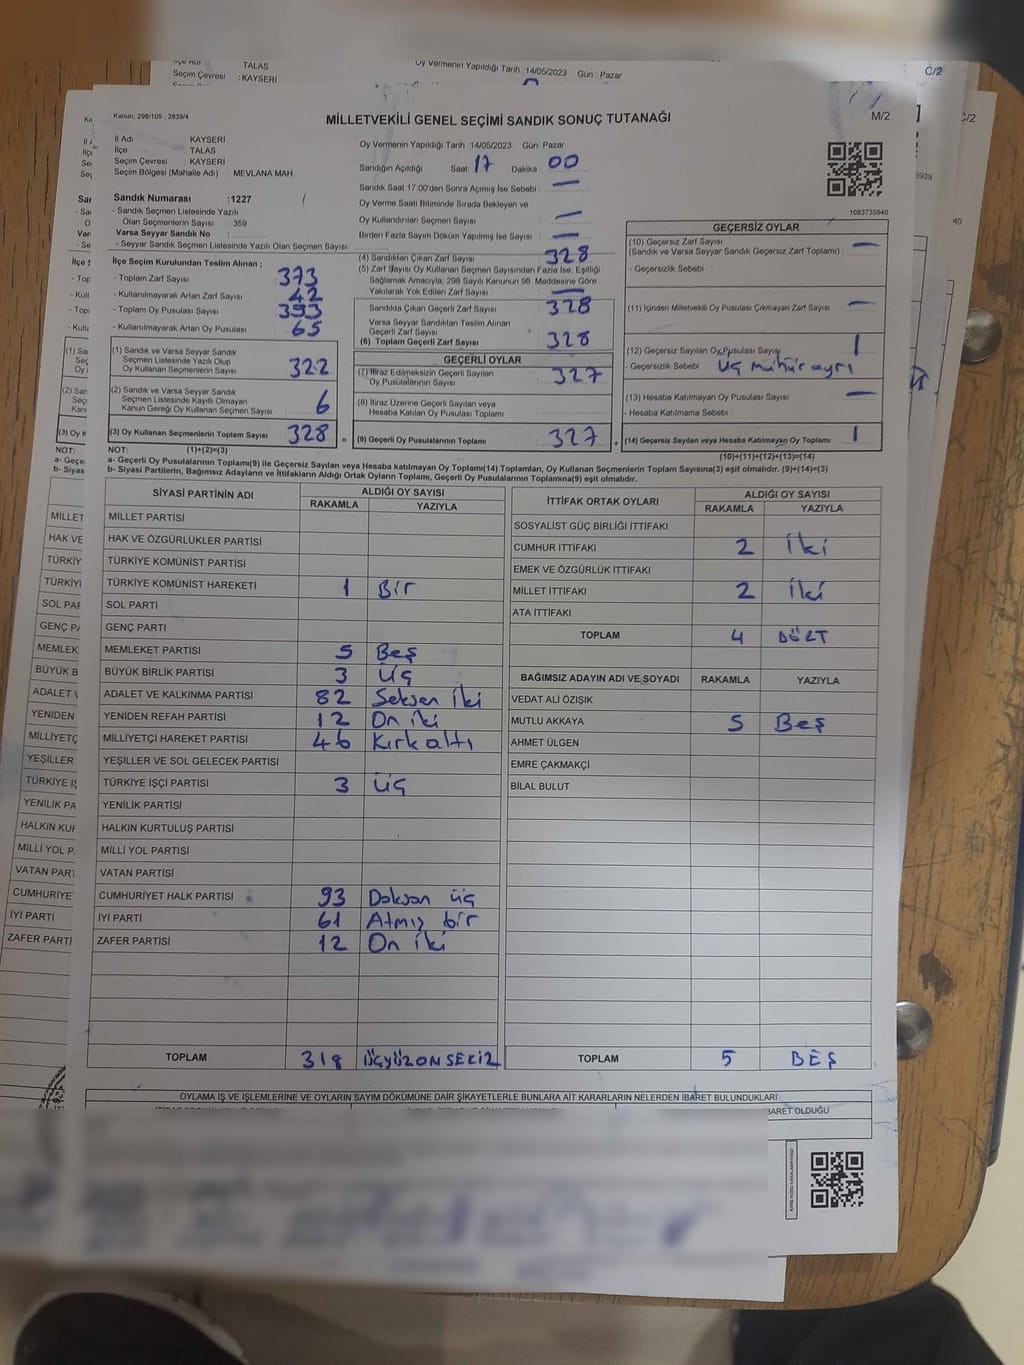 TALAS
Seçim Çevresi : KAYSERİ
Oy Vermenin Yapıldığı Tarih : 14/05/2023 Gün : Pazar
C/2
Kanun, 298/105 , 2839/4
MİLLETVEKİLİ GENEL SEÇİMİ SANDIK SONUÇ TUTANAĞI
M/2
İl Adı : KAYSERİ
İlçe : TALAS
Seçim Çevresi : KAYSERİ
Seçim Bölgesi (Mahalle Adı) : MEVLANA MAH.
Oy Vermenin Yapıldığı Tarih : 14/05/2023 Gün: Pazar
Sandığın Açıldığı Saat : 17 Dakika : 00
Sandık Saat 17:00'den Sonra Açımış İse Sebebi : —
Oy Verme Saati Bitiminde Sırada Bekleyen ve
Oy Kullandırılan Seçmen Sayısı : —
Birden Fazla Sayım Döküm Yapılmış İse Sayısı : —
1083735940
Sandık Numarası :1227
- Sandık Seçmen Listesinde Yazılı
Olan Seçmenlerin Sayısı : 359
Varsa Seyyar Sandık No :
- Seyyar Sandık Seçmen Listesinde Yazılı Olan Seçmen Sayısı:
İlçe Seçim Kurulundan Teslim Alınan ;
- Toplam Zarf Sayısı : 373
- Kullanılmayarak Artan Zarf Sayısı : 42
- Toplam Oy Pusulası Sayısı : 393
- Kullanılmayarak Artan Oy Pusulası : 65
(1) Sandık ve Varsa Seyyar Sandık
Seçmen Listesinde Yazılı Olup
Oy Kullanan Seçmenlerin Sayısı : 322
(2) Sandık ve Varsa Seyyar Sandık
Seçmen Listesinde Kayıtlı Olmayan
Kanun Gereği Oy Kullanan Seçmen Sayısı : 6
(3) Oy Kullanan Seçmenlerin Toplam Sayısı : 328
(4) Sandıktan Çıkan Zarf Sayısı : 328
(5) Zarf Sayısı Oy Kullanan Seçmen Sayısından Fazla İse, Eşitliği
Sağlamak Amacıyla; 298 Sayılı Kanunun 98. Maddesine Göre
Yakılarak Yok Edilen Zarf Sayısı : —
Sandıkta Çıkan Geçerli Zarf Sayısı : 328
Varsa Seyyar Sandıktan Teslim Alınan
Geçerli Zarf Sayısı
(6) Toplam Geçerli Zarf Sayısı : 328
GEÇERLİ OYLAR
(7) İtiraz Edilmeksizin Geçerli Sayılan
Oy Pusulalarının Sayısı : 327
(8) İtiraz Üzerine Geçerli Sayılan veya
Hesaba Katılan Oy Pusulası Toplamı :
(9) Geçerli Oy Pusulalarının Toplamı : 327
GEÇERSİZ OYLAR
(10) Geçersiz Zarf Sayısı : —
(Sandık ve Varsa Seyyar Sandık Geçersiz Zarf Toplamı)
- Geçersizlik Sebebi :
(11) İçinden Milletvekili Oy Pusulası Çıkmayan Zarf Sayısı : —
(12) Geçersiz Sayılan Oy Pusulası Sayısı : 1
- Geçersizlik Sebebi : Üç mühür ayrı
(13) Hesaba Katılmayan Oy Pusulası Sayısı : —
- Hesaba Katılmama Sebebi :
(14) Geçersiz Sayılan veya Hesaba Katılmayan Oy Toplamı : 1
NOT: (1)+(2)=(3)
(10)+(11)+(12)+(13)=(14)
a- Geçerli Oy Pusulalarının Toplamı(9) ile Geçersiz Sayılan veya Hesaba katılmayan Oy Toplamı(14) Toplamları, Oy Kullanan Seçmenlerin Toplam Sayısına(3) eşit olmalıdır. (9)+(14)=(3)
b- Siyasi Partilerin, Bağımsız Adayların ve İttifakların Aldığı Ortak Oyların Toplamı, Geçerli Oy Pusulalarının Toplamına(9) eşit olmalıdır.
SİYASİ PARTİNİN ADI ALDIĞI OY SAYISI
RAKAMLA YAZIYLA
MİLLET PARTİSİ
HAK VE ÖZGÜRLÜKLER PARTİSİ
TÜRKİYE KOMÜNİST PARTİSİ
TÜRKİYE KOMÜNİST HAREKETİ 1 Bir
SOL PARTİ
GENÇ PARTİ
MEMLEKET PARTİSİ 5 Beş
BÜYÜK BİRLİK PARTİSİ 3 Üç
ADALET VE KALKINMA PARTİSİ 82 Seksen iki
YENİDEN REFAH PARTİSİ 12 On iki
MİLLİYETÇİ HAREKET PARTİSİ 46 Kırk altı
YEŞİLLER VE SOL GELECEK PARTİSİ
TÜRKİYE İŞÇİ PARTİSİ 3 üç
YENİLİK PARTİSİ
HALKIN KURTULUŞ PARTİSİ
MİLLİ YOL PARTİSİ
VATAN PARTİSİ
CUMHURİYET HALK PARTİSİ 93 Doksan üç
İYİ PARTİ 61 Atmış bir
ZAFER PARTİSİ 12 On iki
TOPLAM 318 ÜÇYÜZONSEKİZ
İTTİFAK ORTAK OYLARI ALDIĞI OY SAYISI
RAKAMLA YAZIYLA
SOSYALİST GÜÇ BİRLİĞİ İTTİFAKI
CUMHUR İTTİFAKI 2 İki
EMEK VE ÖZGÜRLÜK İTTİFAKI
MİLLET İTTİFAKI 2 İki
ATA İTTİFAKI
TOPLAM 4 DÖRT
BAĞIMSIZ ADAYIN ADI VE SOYADI RAKAMLA YAZIYLA
VEDAT ALİ ÖZIŞIK
MUTLU AKKAYA 5 Beş
AHMET ÜLGEN
EMRE ÇAKMAKÇİ
BİLAL BULUT
TOPLAM 5 BEŞ
OYLAMA İŞ VE İŞLEMLERİNE VE OYLARIN SAYIM DÖKÜMÜNE DAİR ŞİKAYETLERLE BUNLARA AİT KARARLARIN NELERDEN İBARET BULUNDUKLARI
BARET OLDUĞU